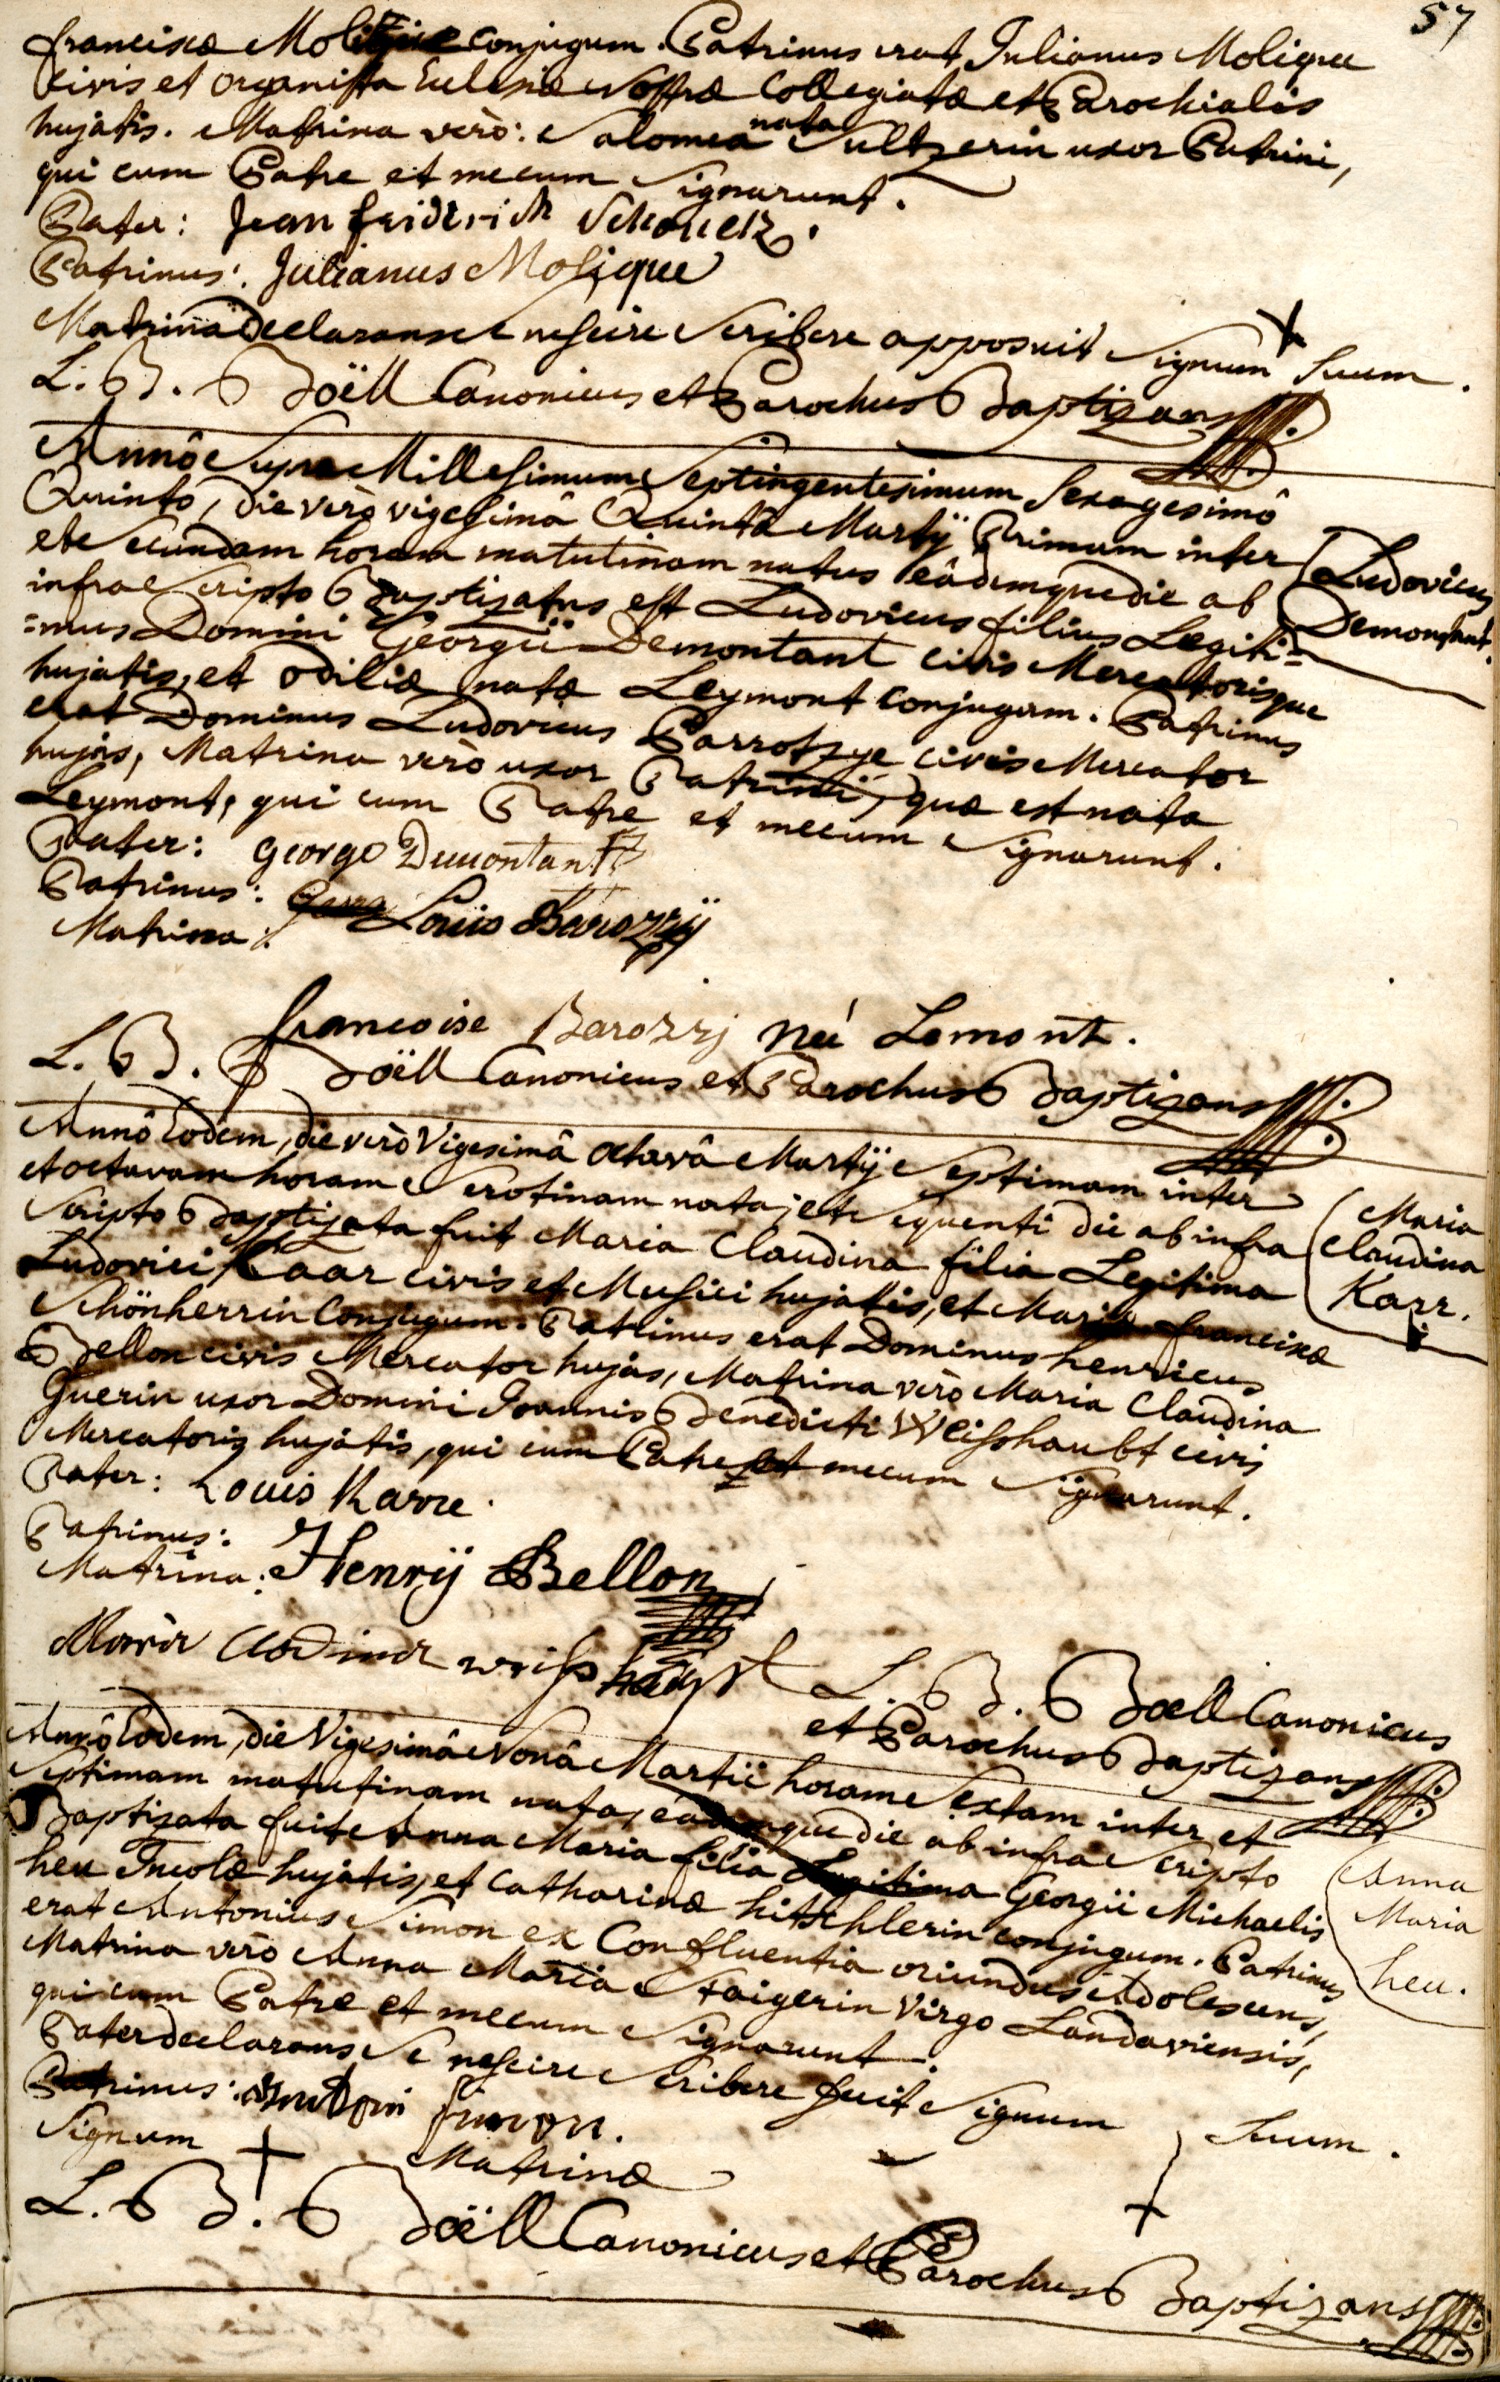 57
franciscæ Molique conjugum. Patrinus erat Julianus Molique
Civis et organista Eclesiæ Nostræ Collegiatæ et Parochialis
hujatis. Matrina verò: Salomea nata Sultzerin uxor Patrini,
qui cum Patre et mecum Signarunt.
Pater: Jean fridrich
Patrinus: Julianus Molique
Matrina declarans se nescire Scribere apposuit Signum + Suum.
L. B. Boëll Canonicus et Parochus Baptizans
Annô Supra Millesimum Septingentesimum Sexagesimô
Quinto, die verò vigesimâ Quintâ Martÿ Primam inter
et Secundam horam matutinam natus eâdemque die ab
infra Scripto Baptizatus est Ludovicus filius Legiti=
=mus Domini Georgii Demontant civis Mercatorisque
hujatis, et Odiliæ natæ Leymont conjugum. Patrinus
erat Dominus Ludovicus Parrotzye civis Mercator
hujas, Matrina verò uxor Patrini, quæ est nata
Leymont, qui cum Patre et mecum Signarunt.
Ludovicus
Demontant.
Pater: George Demontant
Patrinus: Louis Barozzÿ
Matrina:
francoise Barozzj né Lemont.
L. B. Boëll Canonicus et Parochus Baptizans
Annô Eodem, die verò Vigesimâ octavâ Martÿ Septimam inter
et octavam horam Serotinam nata, et Sequenti die ab infra
Scripto Baptizata fuit Maria Claudina filia Legitima
Ludovici Kaar civis et Musici hujatis, et Mariæ franciscæ
Schönherrin Conjugum. Patrinus erat Dominus henricus
Bellon civis Mercator hujas, Matrina verò Maria Claudina
Guerin uxor Domini Joannis Benedicti Weisshaubt civis
Mercatoris hujatis, qui cum Patre et mecum Signarunt.
Maria
Claudina
Karr.
Pater: Louis Karre.
Patrinus:
Matrina: Henrÿ Bellon
Maria Clodina weisshaubt
L. B. Boëll Canonicus
et Parochus Baptizans
Annô Eodem, die Vigesimâ Nonâ Martii horam Sextam inter et
Septimam matutinam nata, eâdemque die ab infra Scripto
Baptizata fuit Anna Maria filia Legitima Georgii Michaelis
heu Incolæ hujatis, et Catharinæ hitschlerin conjugum. Patrinus
erat Antonius Simon ex Confluentia oriundus Adolescens,
Matrina verò Anna Maria Staigerin Virgo Landaviensis,
qui cum Patre et mecum Signarunt.
Anna
Maria
heu.
Pater declarans Se nescire Scribere fecit Signum + Suum.
Patrinus: Antoni Simon.
Signum + Matrinæ
L. B. Boëll Canonicus et Parochus Baptizans